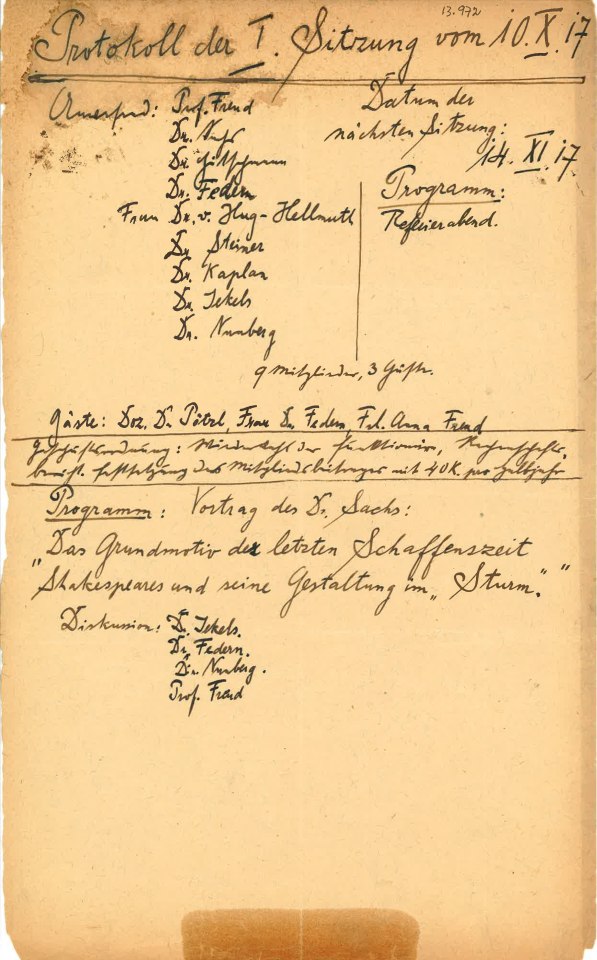 13.972
Protokoll der I. Sitzung vom 10.X.17
Anwesend: Prof. Freud
Dr. Sachs
Dr. Hitschmann
Dr. Federn
Frau Dr. v. Hug-Hellmuth
Dr. Steiner
Dr. Kaplan
Dr. Jekels
Dr. Nunberg
Datum der
nächsten Sitzung:
14. XI. 17
Programm:
Referierabend.
9 Mitglieder, 3 Gäste.
Gäste: Doz. Dr. Pötzl, Frau Dr. Federn, Frl. Anna Freud
Geschäftsordnung: Wiederwahl der Funktionäre, Rechenschafts-
bericht. Festsetzung des Mitgliedsbeitrages mit 40 K. pro Halbjahr
Programm: Vortrag des Dr. Sachs:
"Das Grundmotiv der letzten Schaffenszeit
Shakespeares und seine Gestaltung im „Sturm."“
Diskussion: Dr. Jekels.
Dr. Federn.
Dr. Nunberg.
Prof. Freud